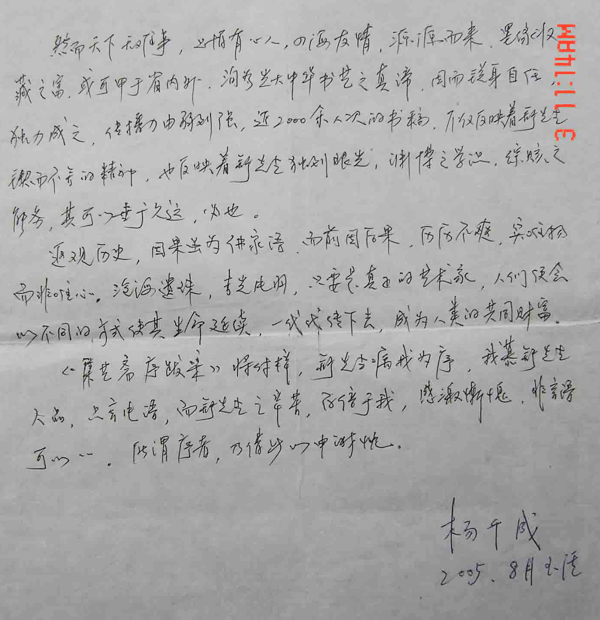 然而天下无难事，上怕有心人，四海友情，源源而来，墨缘收
藏之富，或可甲于省内外。洵为光大中华书艺之真谛，因而疑身自任
独力成之，传播力由弱到强，近2000余人次的书稿，不仅反映着靳先生
锲而不舍的精神，也反映着靳先生独到眼光，渊博之学识，综赅之
能务，其可以垂于久远，必也。
返观历史，因果虽为佛家语，而前因后果，历历不爽，实唯物
而非唯心。沧海遗珠，吉光片羽，只要是真正的艺术家，人们便会
以不同的方式使其生命延续，一代代传下去，成为人类的共同财富。
《 艺斋序跋录》将付梓，靳先生嘱我为序，我慕靳先生
人品，只言电话，而靳先生之年甚， 倍于我，感激惭愧，非言语
可以 。所谓序者，乃借此以申谢忱。
杨千成
2005.8月
3 11:14AM